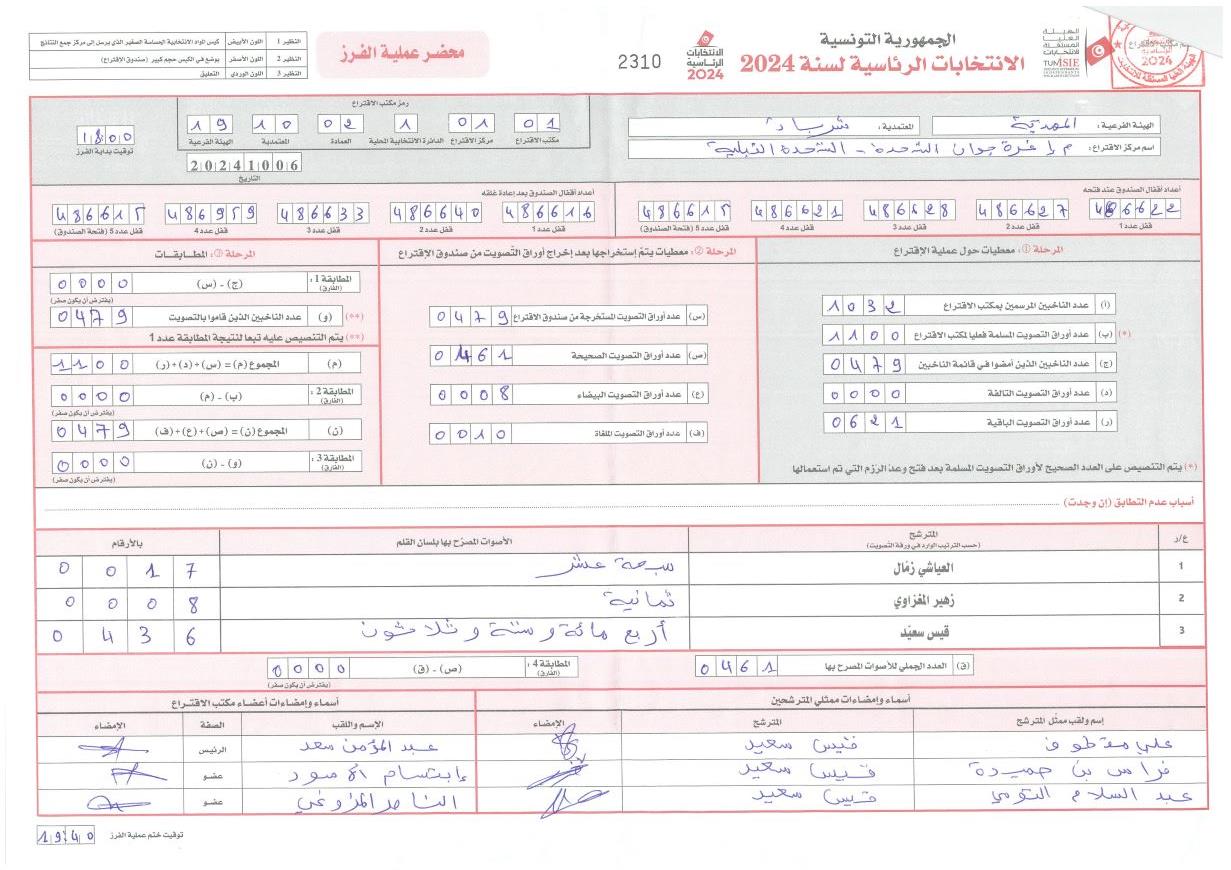 النظير 1 اللون الأبيض كيس المواد الانتخابية الحساسة الصغير الذي يرسل إلى مركز جمع النتائج
النظير 2 اللون الأصفر يوضع في الكيس حجم كبير (صندوق الإقتراع)
النظير 3 اللون الوردي التعليق
محضر عملية الفرز
2310
الانتخابات الرئاسية 2024
الجمهورية التونسية
الانتخابات الرئاسية لسنة 2024
الهيئة العليا المستقلة للانتخابات
TUNISIE
الهيئة الفرعية : المهدية
المعتمدية :
اسم مركز الاقتراع :
رمز مكتب الاقتراع
01 مكتب الاقتراع
01 مركز الاقتراع
1 الدائرة الانتخابية المحلية
02 العمادة
10 المعتمدية
19 الهيئة الفرعية
20241006
التاريخ
1800
توقيت بداية الفرز
أعداد أقفال الصندوق عند فتحه
486622 قفل عدد 1
486627 قفل عدد 2
486628 قفل عدد 3
486621 قفل عدد 4
486615 قفل عدد 5 (فتحة الصندوق)
أعداد أقفال الصندوق بعد إعادة غلقه
486616 قفل عدد 1
486640 قفل عدد 2
486633 قفل عدد 3
486959 قفل عدد 4
486615 قفل عدد 5 (فتحة الصندوق)
المرحلة ①: معطيات حول عملية الإقتراع
(أ) عدد الناخبين المرسمين بمكتب الاقتراع 1032
(*) (ب) عدد أوراق التصويت المسلمة فعليا لمكتب الاقتراع 1100
(ج) عدد الناخبين الذين أمضوا في قائمة الناخبين 0479
(د) عدد أوراق التصويت التالفة 0000
(ر) عدد أوراق التصويت الباقية 0621
(*) يتم التنصيص على العدد الصحيح لأوراق التصويت المسلمة بعد فتح وعدّ الرزم التي تم استعمالها
المرحلة ②: معطيات يتمّ إستخراجها بعد إخراج أوراق التّصويت من صندوق الإقتراع
(س) عدد أوراق التصويت المستخرجة من صندوق الاقتراع 0479
(ص) عدد أوراق التصويت الصحيحة 0461
(ع) عدد أوراق التصويت البيضاء 0008
(ف) عدد أوراق التصويت الملغاة 0010
المرحلة ③: المطابقات
المطابقة 1 : (الفارق) (ج) - (س) 0000
(يفترض أن يكون صفر)
(**) (و) عدد الناخبين الذين قاموا بالتصويت 0479
(**) يتم التنصيص عليه تبعا لنتيجة المطابقة عدد 1
(م) المجموع (م) = (س)+(د)+(ر) 1100
المطابقة 2 : (الفارق) (ب) - (م) 0000
(يفترض أن يكون صفر)
(ن) المجموع (ن) = (ص)+(ع)+(ف) 0479
المطابقة 3 : (الفارق) (و) - (ن) 0000
(يفترض أن يكون صفر)
أسباب عدم التطابق (إن وجدت)
ع/ر المترشح (حسب الترتيب الوارد في ورقة التصويت) الأصوات المصرّح بها بلسان القلم بالأرقام
1 العياشي زمّال سبعة عشر 0017
2 زهير المغزاوي ثمانية 0008
3 قيس سعيّد أربع مائة وستة وثلاثون 0436
(ق) العدد الجملي للأصوات المصرح بها 0461
المطابقة 4 : (الفارق) (ص) - (ق) 0000
(يفترض أن يكون صفر)
أسماء وإمضاءات ممثلي المترشحين
إسم ولقب ممثل المترشح المترشح الإمضاء
علي معطوف قيس سعيد
فراس بن حميدة قيس سعيد
عبد السلام التومي قيس سعيد
أسماء وإمضاءات أعضاء مكتب الاقتراع
الإسم واللقب الصفة الإمضاء
عبد المؤمن سعد الرئيس
إبتسام الأسود عضو
الناصر المزوغي عضو
توقيت ختم عملية الفرز 1940